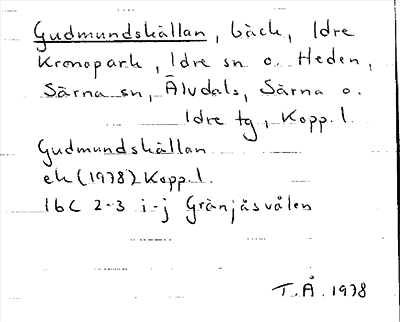 Gudmundskällan, bäck, Idre
Kronopark, Idre sn o. Heden,
Särna sn, Älvdals, Särna o.
Idre tg, Kopp. l.
Gudmundskällan
ek (1978) Kopp. l.
16C 2-3 i-j Gränjåsvålen
T. Å. 1978